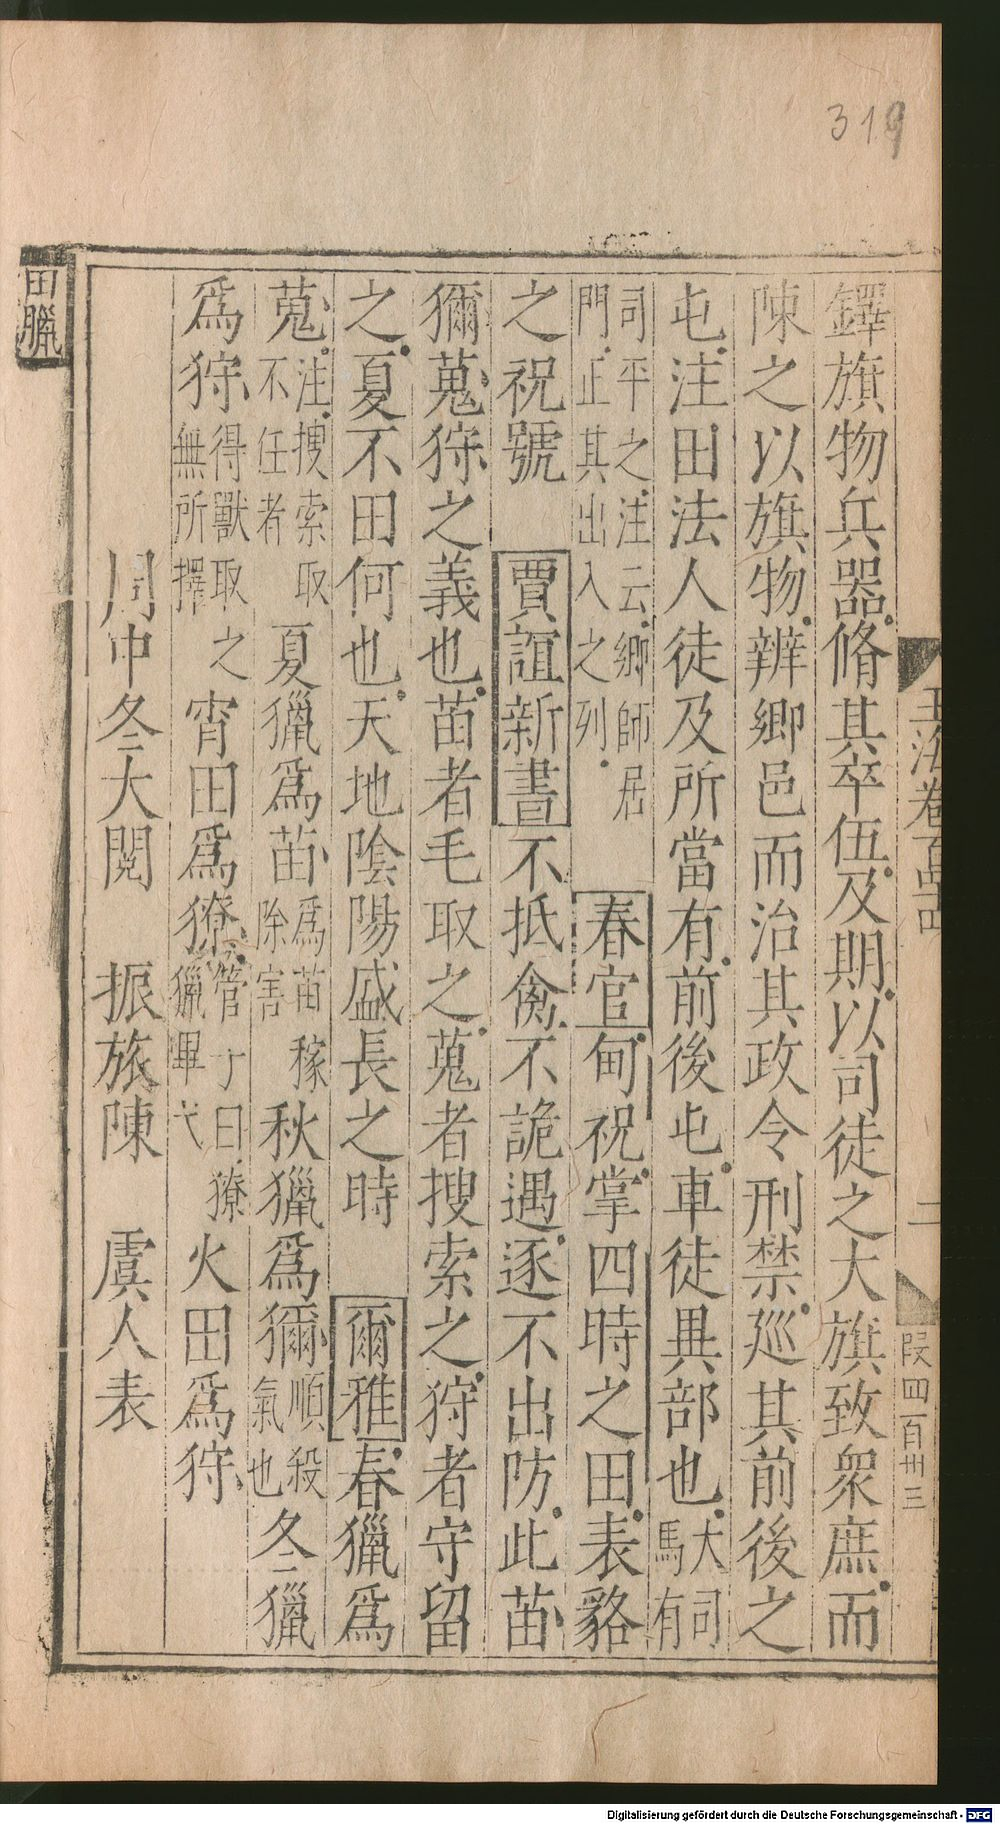 319
玉海卷百四四
二
段四百卅三
鐸旗物兵器脩其卒伍及期以司徒之大旗致衆庶而
陳之以旗物辨鄉邑而治其政令刑禁廵其前後之
屯注田法人徒及所當有前後屯車徒異部也大司馬有
司平之注云鄉師居門正其出入之列春官甸祝掌四時之田表貉
之祝號 賈誼新書不抵禽不詭遇逐不出防此苗
獮蒐狩之義也苗者毛取之蒐者搜索之狩者守留
之夏不田何也天地陰陽盛長之時 爾雅春獵爲
蒐注搜索取不任者夏獵爲苗爲苗稼除害秋獵爲獮順殺氣也冬獵
爲狩得獸取之無所擇宵田爲獠管子曰獠獵畢弋火田爲狩
周中冬大閱 振旅陳 虞人表
田臘
Digitalisierung gefördert durch die Deutsche Forschungsgemeinschaft - DFG